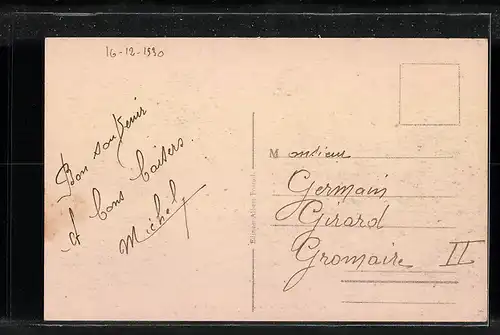 16-12-1930
Bon souvenir
et bons baisers
Michel
Monsieur
Germain
Girard
Gromaire II